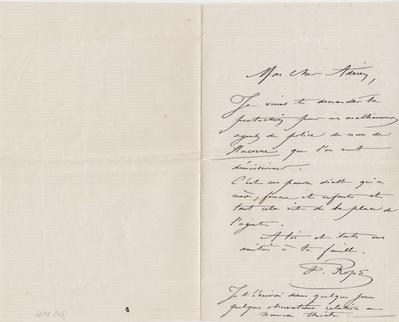 Mon cher Adrien,
Je viens te demander ta
protection pour un malheureux
agent de police du nom de
que l'on veut
démissionner.
C'est un pauvre diable qui a
mère, femme et enfants et
tout cela vit de la place de
l'agent.
A toi et toutes mes
amitiés à ta famille.
Rops
Je t'écrirai dans quelques jours
quelques observations relatives au
nouveau théâtre.